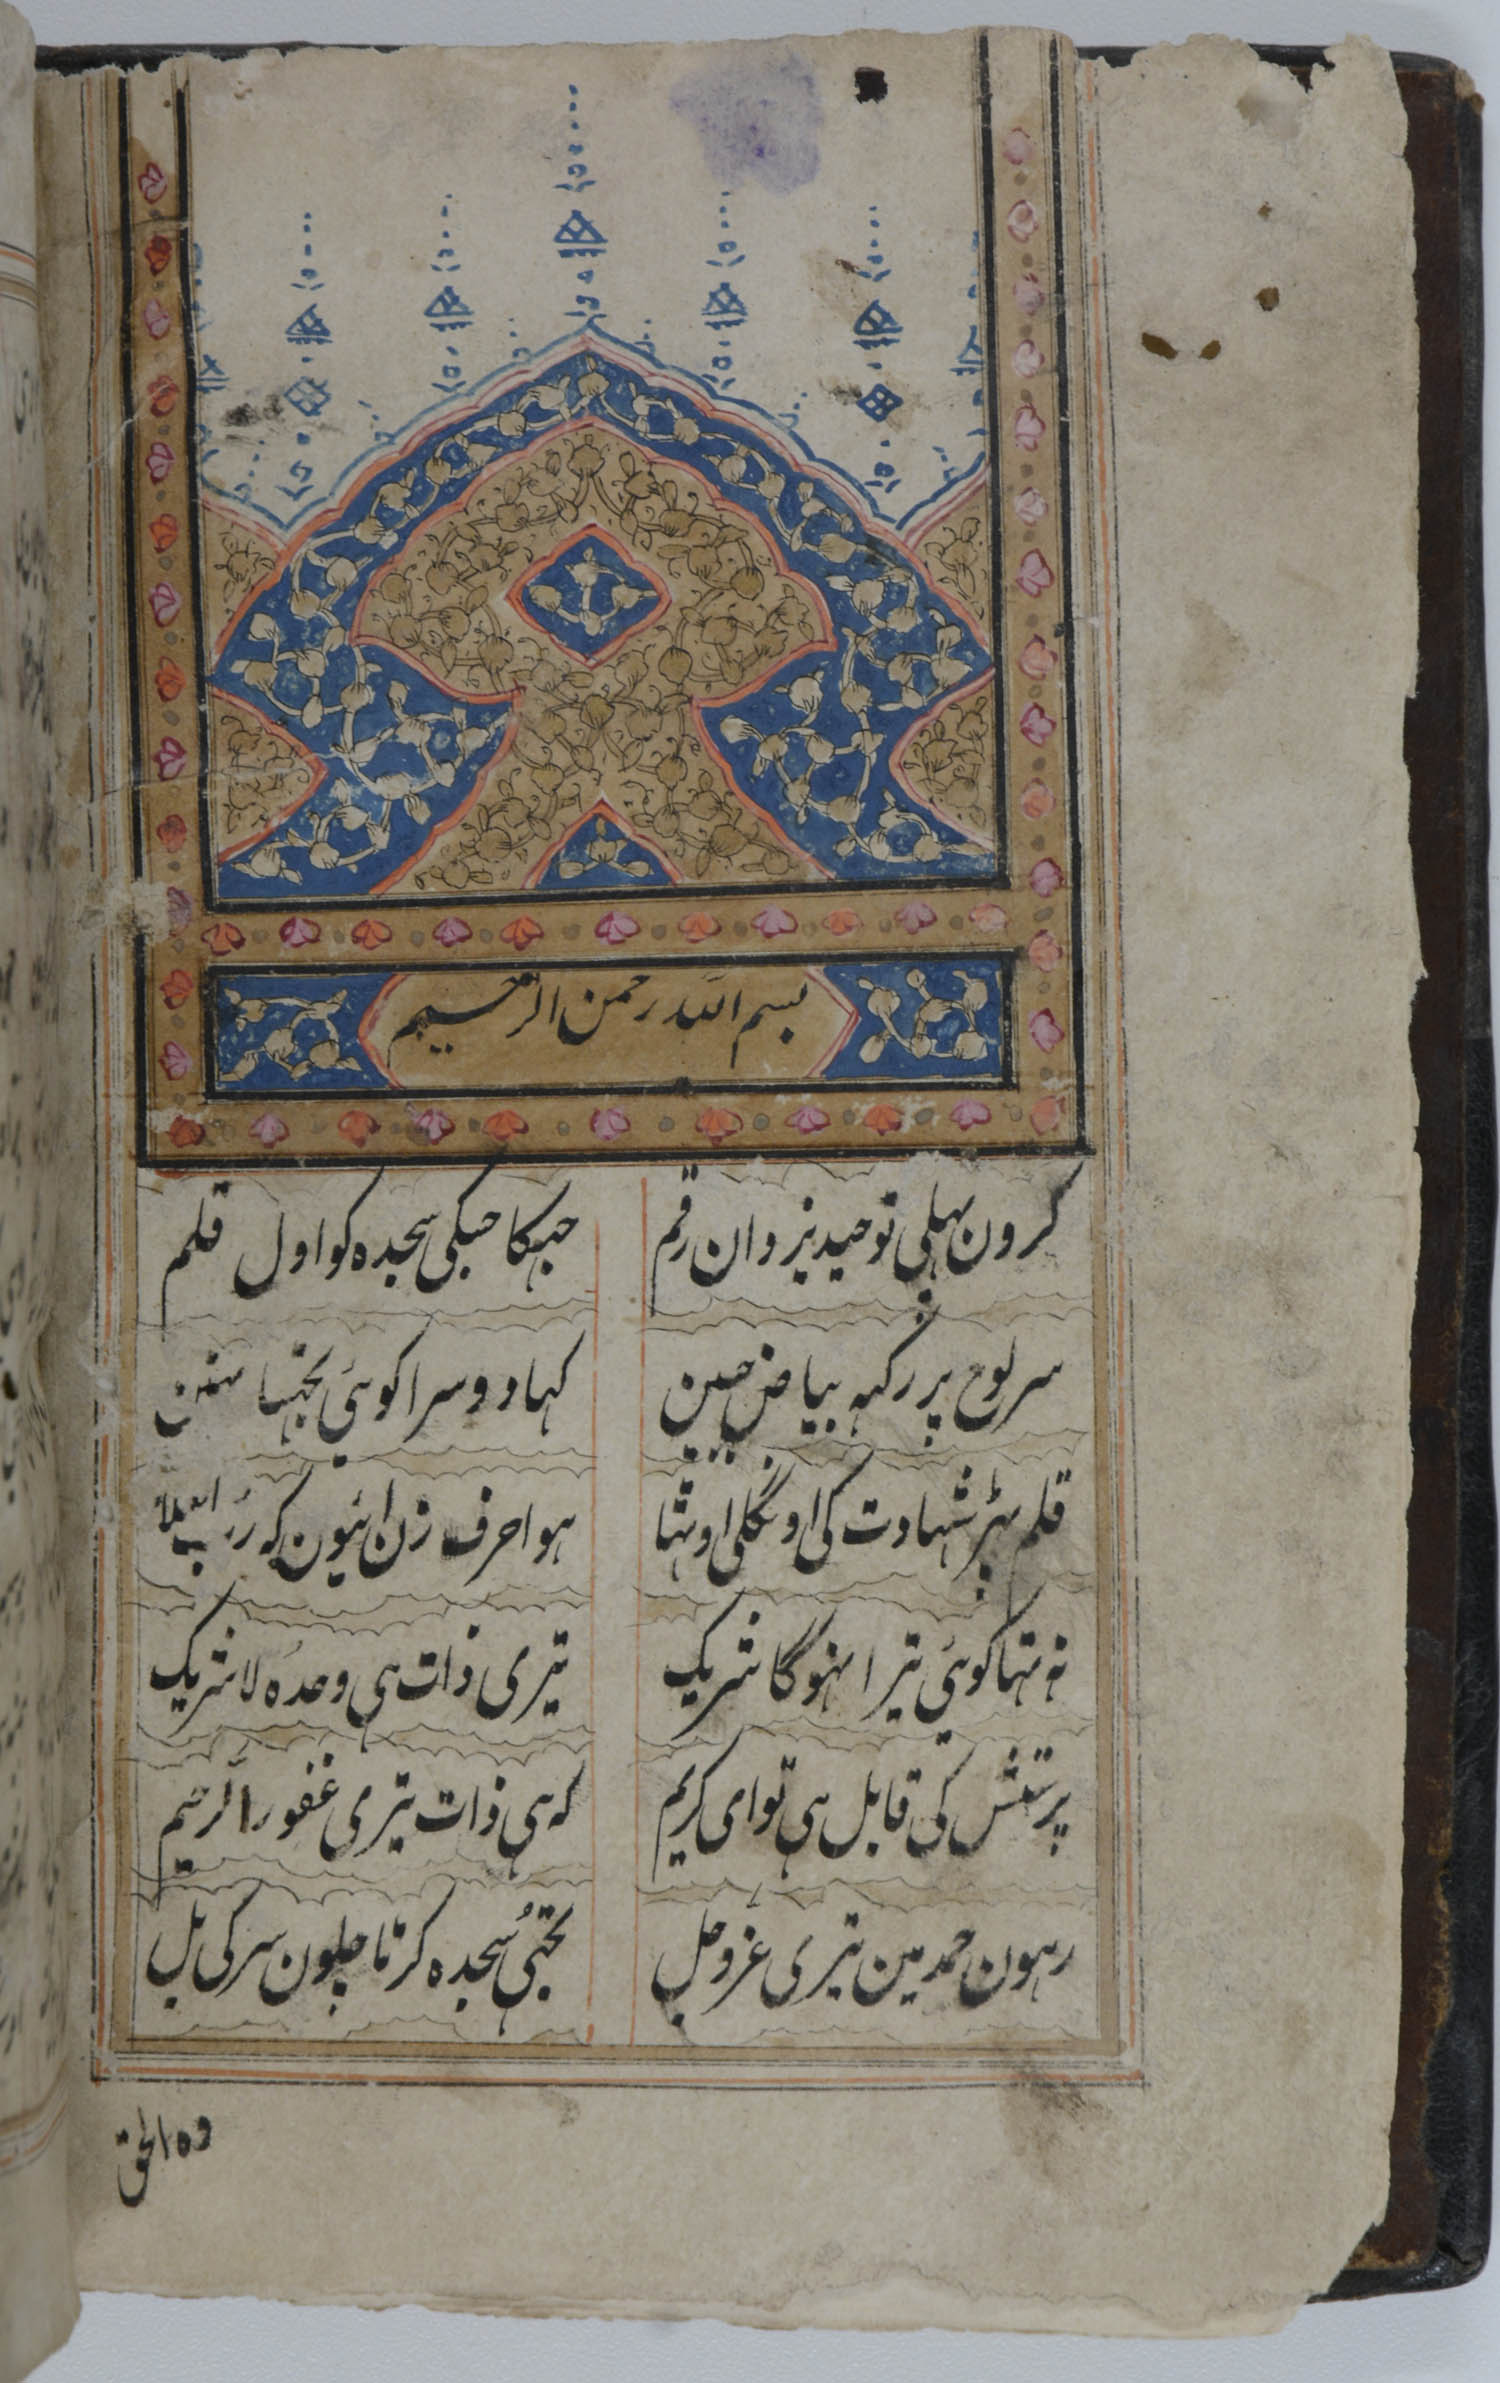 بسم اللہ رحمن الرحیم
کرون پہلی توحید یزدان رقم جہکا جبکی سجدہ کو اول قلم
سر لوح پر رکہہ بیاض جبین کہا دوسرا کوئی تجہسا نہین
قلم پہر شہادت کی اونگلی اوٹہا ہوا حرف زن ایون کہ رب العلا
نہ تہا کوئی تیرا نہوگا شریک تیری ذات ہی وحدہ لا شریک
پرستش کی قابل ہی تو ای کریم کہ ہی ذات تیری غفور الرحیم
رہون حمد مین تیری عزوجل تجہی سجدہ کرتا چلون سر کی بل
وہ الحق